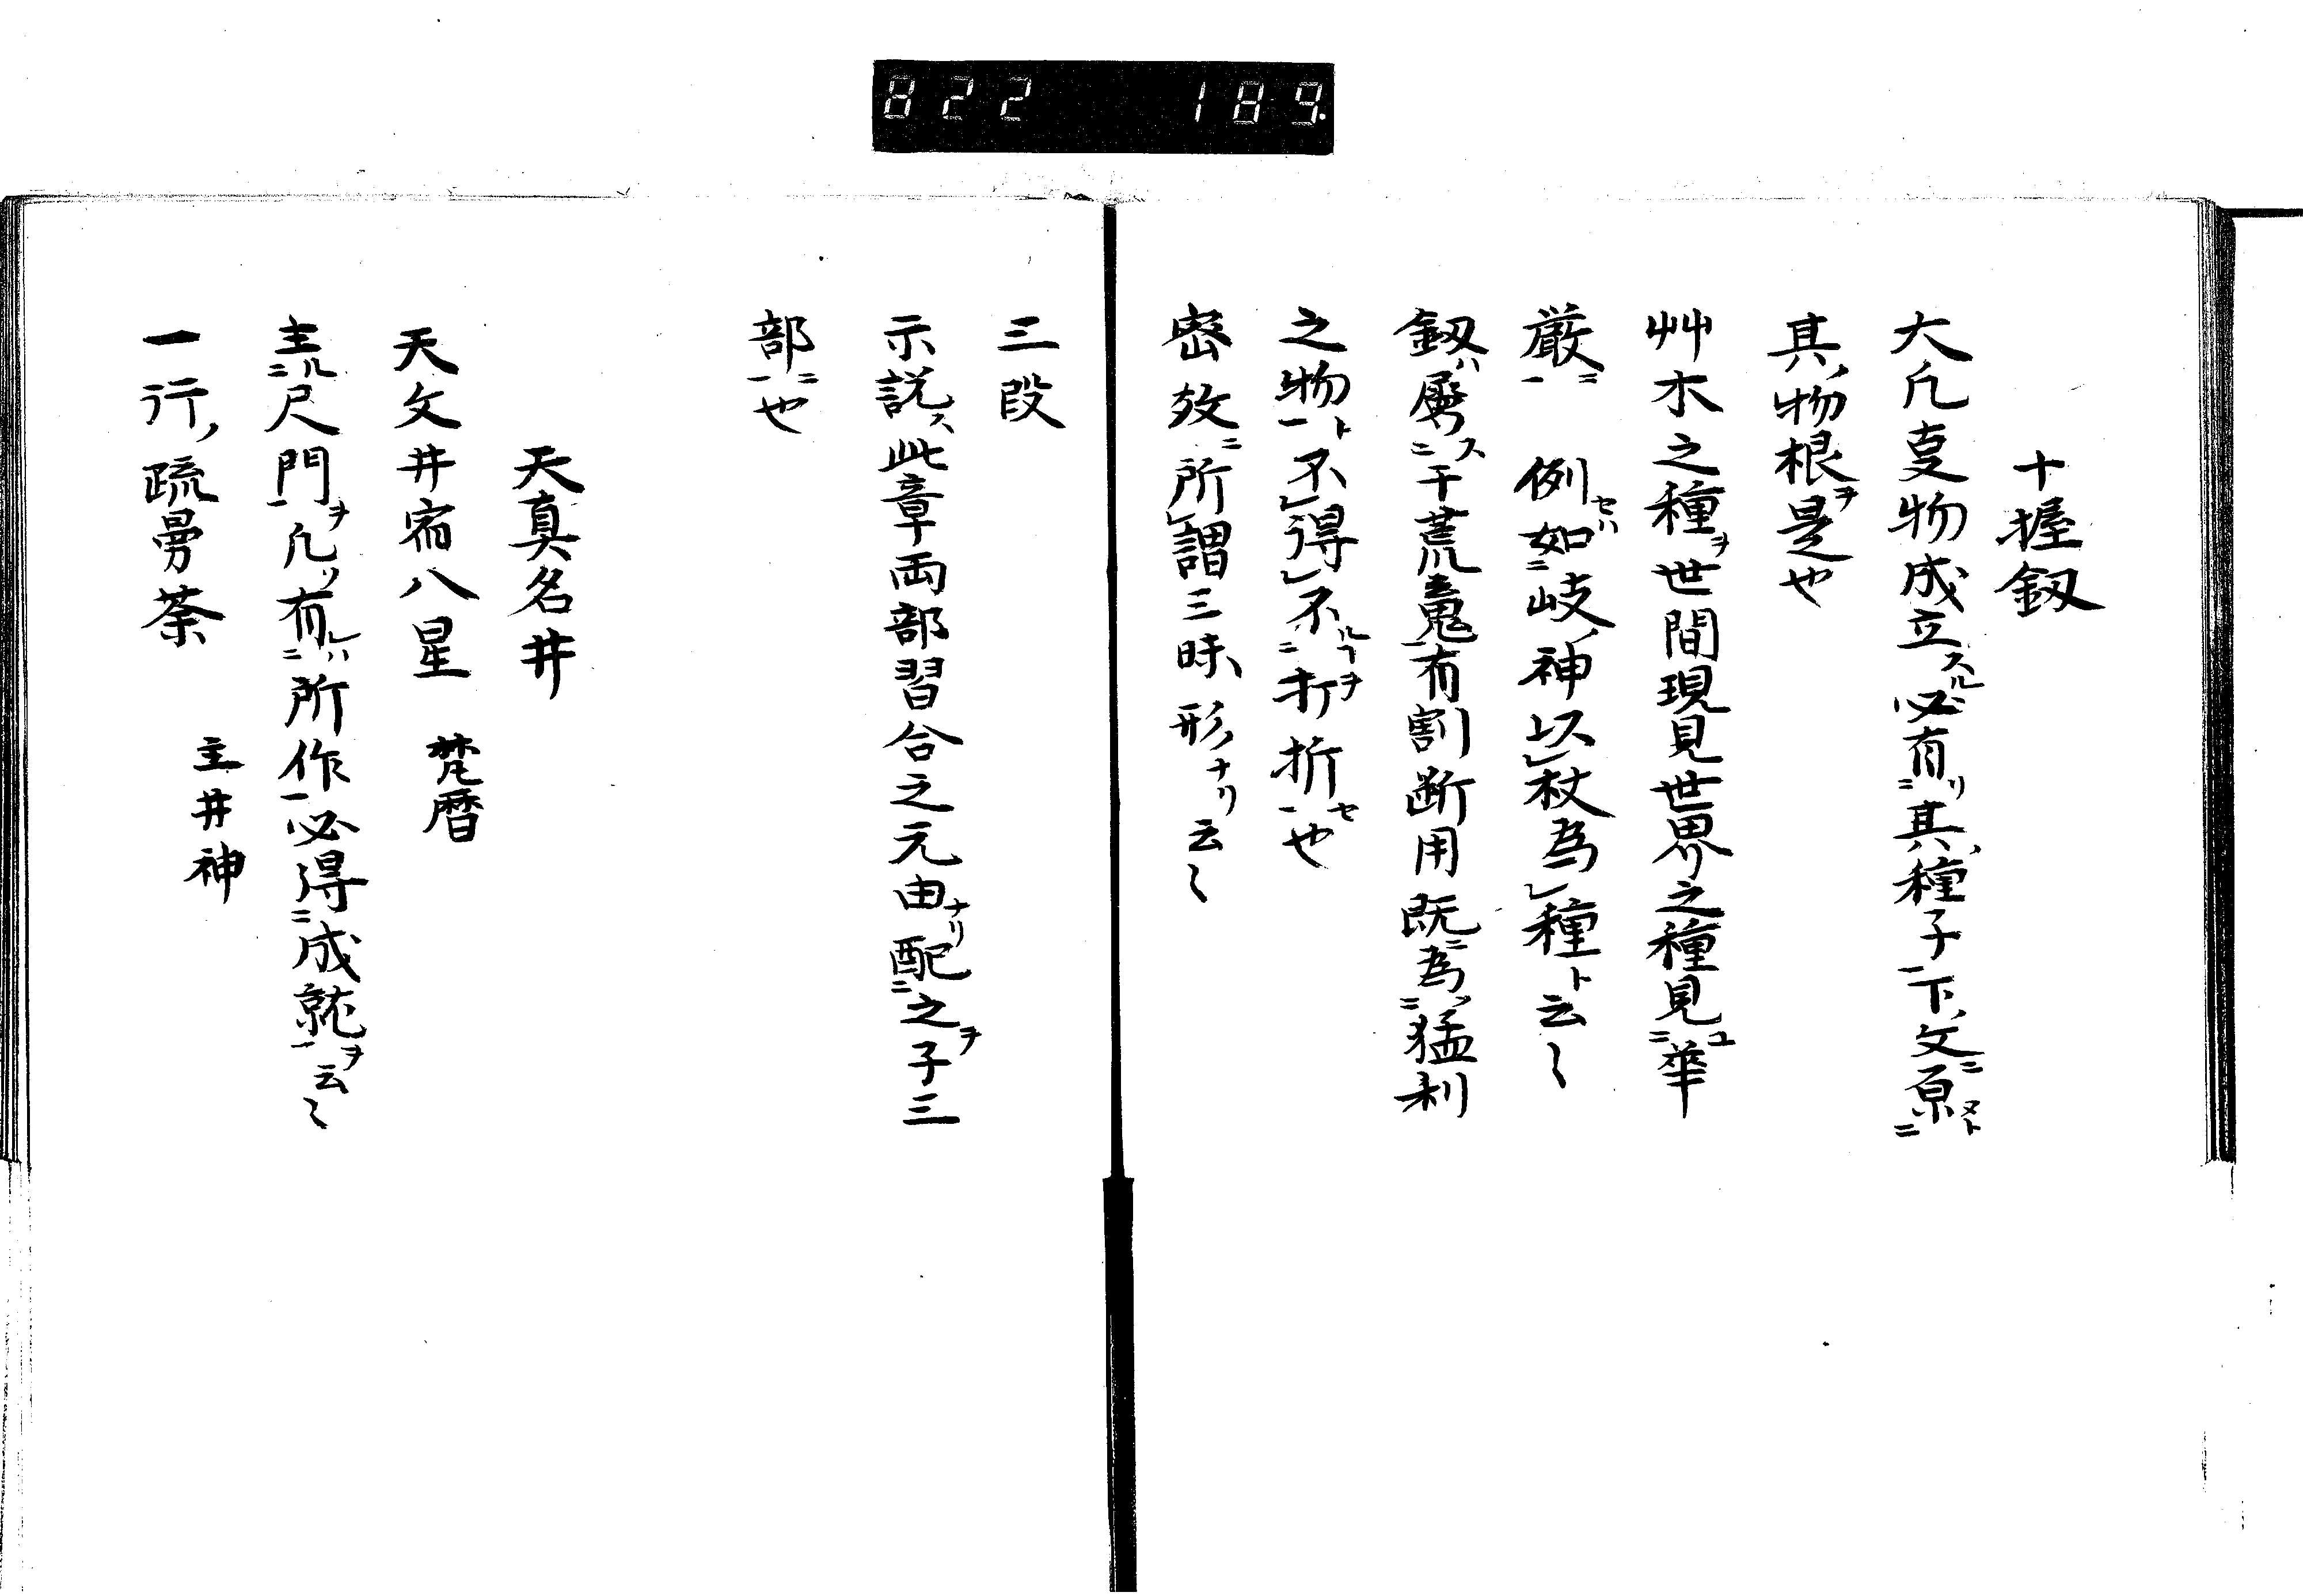 822 189.
十握釼
大凡叓物成立スル必有二リ其ノ種子一下ノ文ニ原二ヌト
其ノ物根ヲ是也
艸木之種ヲ世間現見世界之種見二ユ華
厳一ニ 例セハ如二岐ノ神以レ杖為レ種ト云〻
釼ハ屠二ス干荒鬼一有割断用既ニ為二猛利
之物一ト不レ得レ不二ルヿヲ打折一セ也
密教ニ所レ謂三昧ノ形ナリ云〻
三段
示説ス此章両部習合之元由ナリ配二之ヲ子三
部一ニ也
天真名井
天文井宿八星 梵暦
主二ル尺門一ヲ凡ソ有二レハ所作一必得二成就一ヲ云〻
一行ノ疏曼荼 主井神